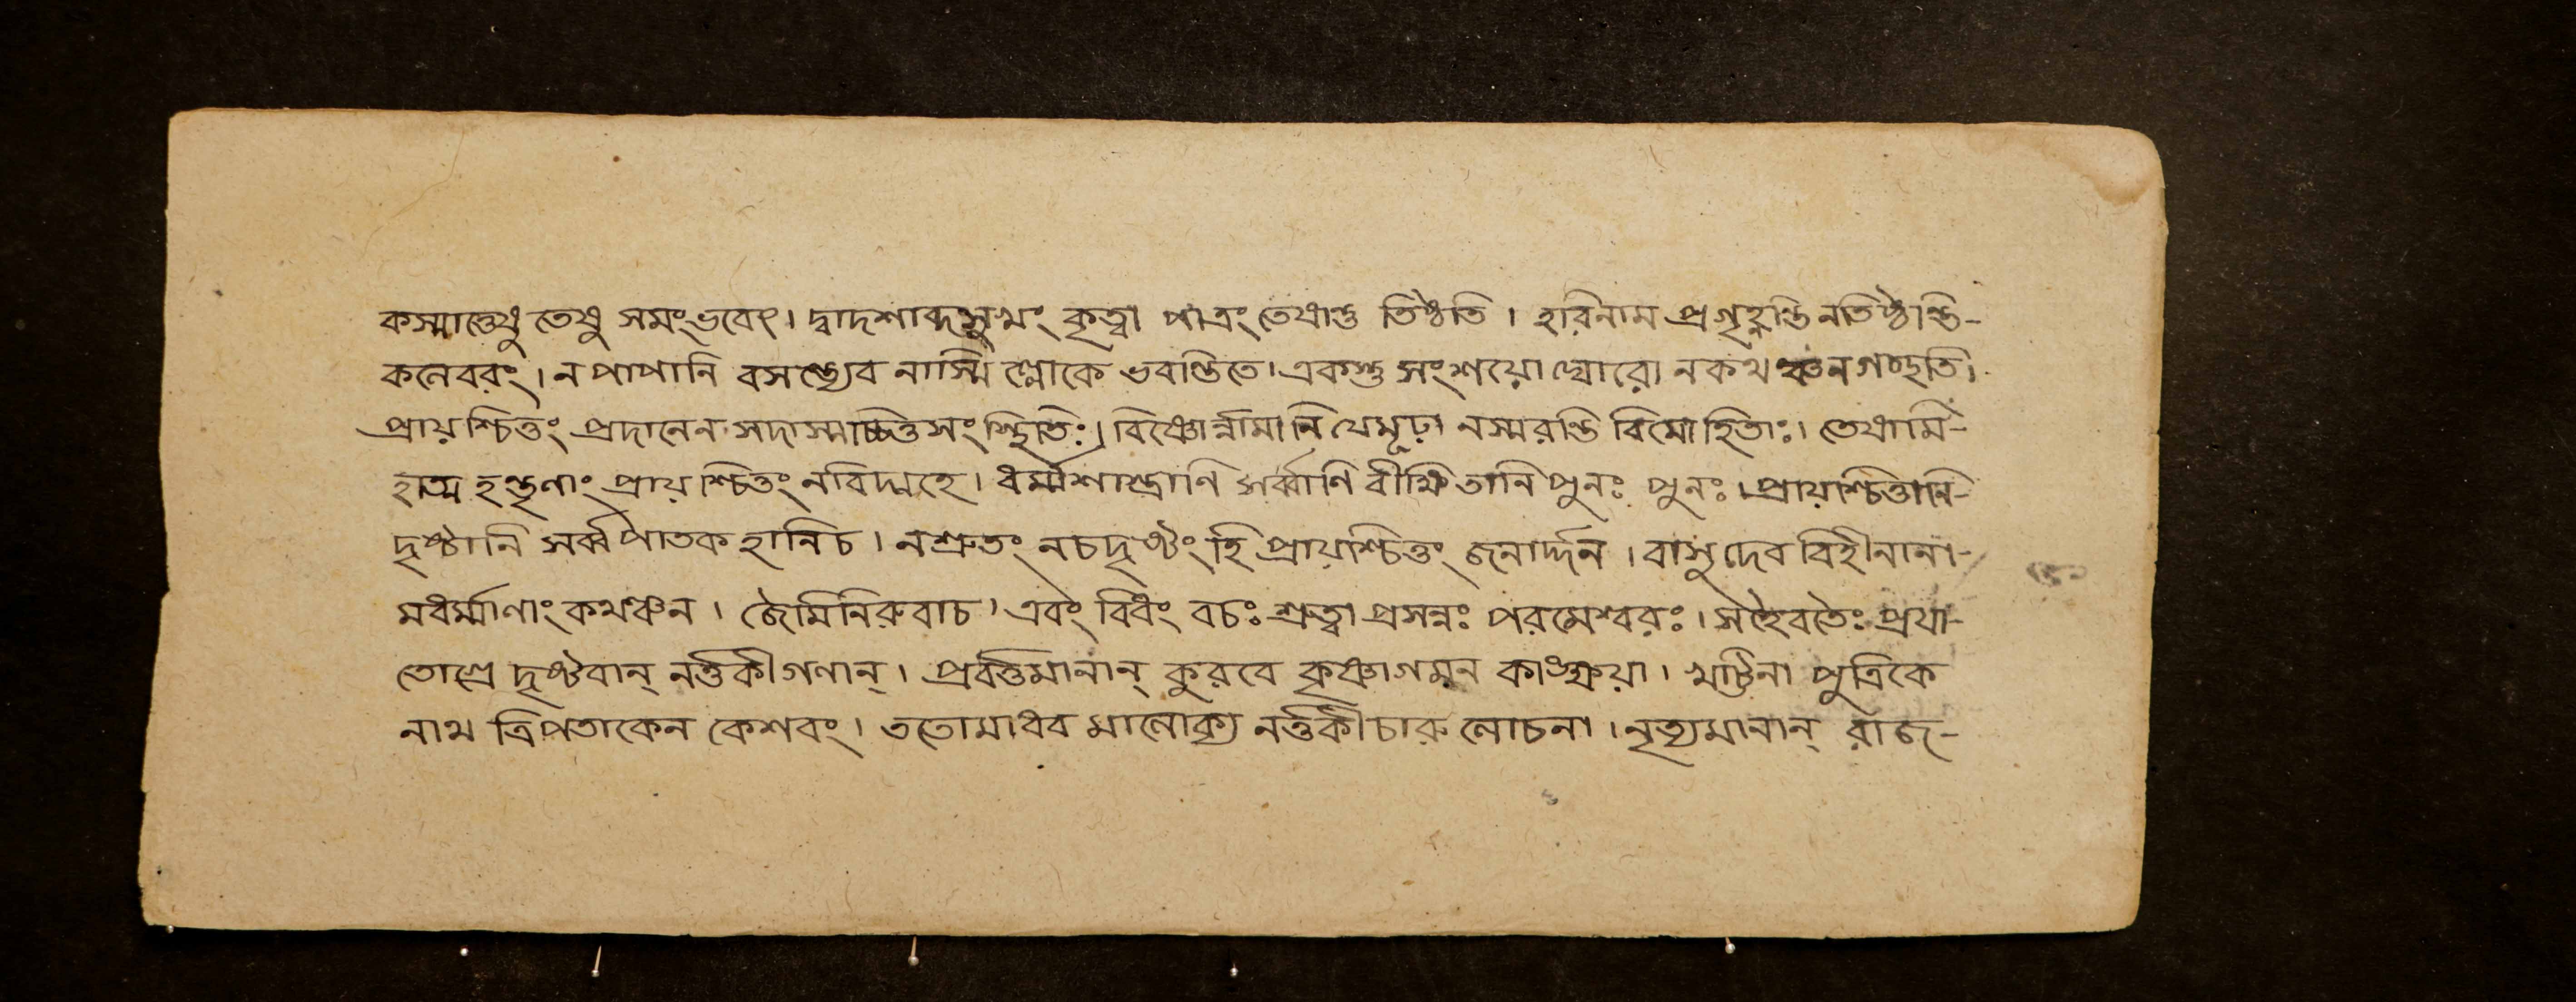 কস্মাত্তেষু তেষু সমং ভবেৎ। দ্বাদশাব্দসুখং কৃত্বা পাত্রং তেষান্তু তিষ্ঠতি । হরিনাম প্রগৃহ্ণন্তি নতিষ্ঠন্তি-
কলেবরং । ন পাপানি বসন্ত্যেব নাস্মি ল্লোকে ভবন্তিতে। একস্তু সংশয়ো ঘোরো নকথঞ্চনগচ্ছতি।
প্রায়শ্চিত্তং প্রদানেন সদাস্মাচ্চিত্তসংস্থিতিঃ। বিষ্ণোর্ন্নামানি যেমূঢ়া নস্মরন্তি বিমোহিতাঃ। তেষামি-
হাত্ম হন্তৃণাং প্রায়শ্চিত্তং নবিদ্মহে । ধর্ম্মশাস্ত্রাণি সর্ব্বাণি বীক্ষিতানি পুনঃ পুনঃ । প্রায়শ্চিত্তানি-
দৃষ্টানি সর্ব্ব পাতক হানিচ । নশ্রুতং নচদৃষ্টং হি প্রায়শ্চিত্তং জনার্দ্দন । বাসুদেব বিহীনানা-
মধর্ম্মাণাং কথঞ্চন । জৈমিনিরুবাচ। এবং বিধং বচঃ শ্রুত্বা প্রসন্নঃ পরমেশ্বরঃ । সহৈবতৈঃ প্রযা-
তোগ্রে দৃষ্টবান্ নর্ত্তকীগণান্ । প্রবর্ত্তমানান্ কুরবে কৃষ্ণাগমন কাঙ্ক্ষয়া । পুত্রিকে
নাথ ত্রিপতাকেন কেশবং । ততোমাধব মালোক্য নর্ত্তকীচারু লোচনা । নৃত্যমানান্ রাজ-